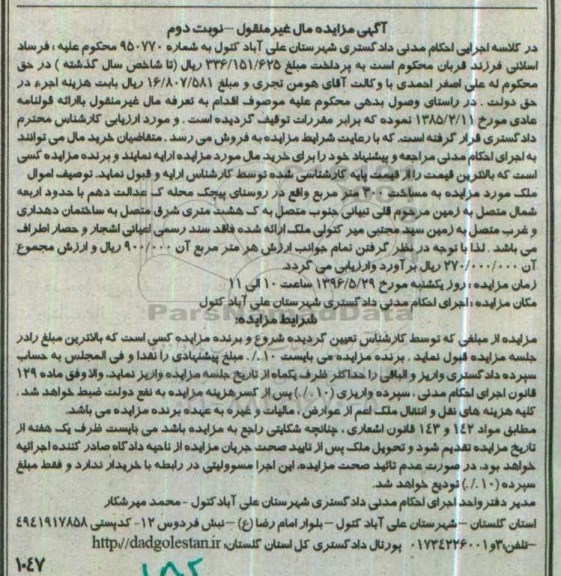 آگهی مزایده مال غیرمنقول – نوبت دوم
در کلاسه اجرایی احکام مدنی دادگستری شهرستان علی آباد کتول به شماره ۹۵۰۷۷۰ محکوم علیه : فرساد
اسلائی فرزند قربان محکوم است به پرداخت مبلغ ۳۳۶/۱۵۱/۶۲۵ ریال (تا شاخص سال گذشته ) در حق
محکوم له علی اصغر احمدی با وکالت آقای هومن تجری و مبلغ ۱۶/۸۰۷/۵۸۱ ریال بابت هزینه اجرا در
حق دولت . در راستای وصول بدهی محکوم علیه موصوف اقدام به تعرفه مال غیرمنقول باارائه قولنامه
عادی مورخ ۱۳۸۵/۲/۱۱ نموده که برابر مقررات توقیف گردیده است . و مورد ارزیابی کارشناس محترم
دادگستری قرار گرفته است. که با رعایت شرایط مزایده به فروش می رسد . متقاضیان خرید مال می توانند
به اجرای احکام مدنی مراجعه و پیشنهاد خود را برای خرید مال مورد مزایده ارایه نمایند و برنده مزایده کسی
است که بالاترین قیمت را از قیمت پایه کارشناسی شده توسط کارشناس ارایه و قبول نماید. توصیف اموال
ملک مورد مزایده به مساحت ۳۰۰ متر مربع واقع در روستای پیچک محله ک عدالت دهم با حدود اربعه
شمال متصل به زمین مرحوم قلی تبیانی جنوب متصل به ک هشت متری شرق متصل به ساختمان دهداری
و غرب متصل به زمین سید مجتبی میر کتولی ملک ارائه شده فاقد سند رسمی اعیانی اشجار و حصار اطراف
می باشد . لذا با توجه در نظر گرفتن تمام جوانب ارزش هر متر مربع آن ۹۰۰/۰۰۰ ریال و ارزش مجموع
آن ۲۷۰/۰۰۰/۰۰۰ ریال برآورد وارزیابی می گردد.
زمان مزایده : روز یکشنبه مورخ ۱۳۹۶/۵/۲۹ ساعت ۱۰ الی ۱۱
مکان مزایده : اجرای احکام مدنی دادگستری شهرستان علی آباد کتول
ParsNamadData
شرایط مزایده:
مزایده از مبلغی که توسط کارشناس تعیین گردیده شروع و برنده مزایده کسی است که بالاترین مبلغ رادر
جلسه مزایده قبول نماید . برنده مزایده می بایست ۱۰٪ مبلغ پیشنهادی را نقدا و فی المجلس به حساب
سپرده دادگستری واریز و الباقی را حداکثر ظرف یکماه از تاریخ جلسه مزایده واریز نماید، والا وفق ماده ۱۲۹
قانون اجرای احکام مدنی ، سپرده واریزی (۱۰٪) پس از کسرهزینه مزایده به نفع دولت ضبط خواهد شد .
کلیه هزینه های نقل و انتقال ملک اعم از عوارض ، مالیات و غیره به عهده برنده مزایده می باشد.
مطابق مواد ۱۴۲ و ۱۴۳ قانون اشعاری ، چنانچه شکایتی راجع به مزایده باشد می بایست ظرف یک هفته از
تاریخ مزایده تقدیم شود و تحویل ملک پس از تایید صحت جریان مزایده از ناحیه دادگاه صادر کننده اجرائیه
خواهد بود. در صورت عدم تائید صحت مزایده، این اجرا مسوولیتی در رابطه با خریدار ندارد و فقط مبلغ
سپرده (۱۰٪) تودیع خواهد شد.
مدیر دفترواحد اجرای احکام مدنی دادگستری شهرستان علی آباد کتول - محمد میرشکار
استان گلستان – شهرستان علی آباد کتول – بلوار امام رضا (ع) – نبش فردوس ۱۲ - کدپستی ۴۹۴۱۹۱۷۸۵۸
– تلفن:۳و۰۱۷۳۴۲۳۶۰۰۱ پورتال دادگستری کل استان گلستان: http://dadgolestan.ir
۱۰۴۷
۱۸۲